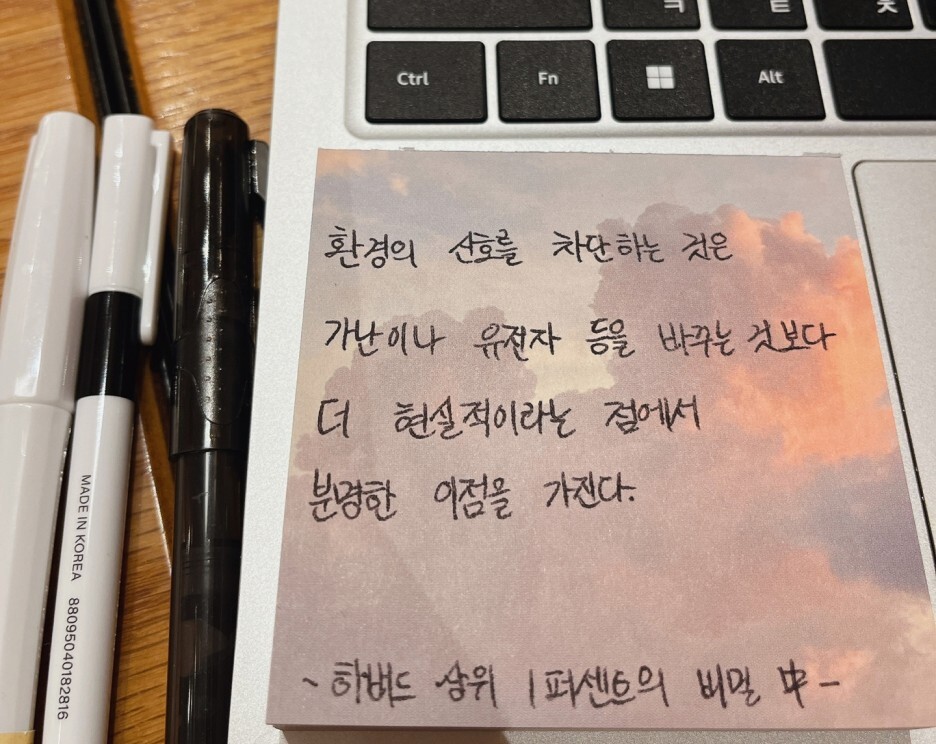 ㅋ ㅌ ㅊ
Ctrl Fn Alt
환경의 신호를 차단하는 것은
가난이나 유전자 등을 바꾸는 것보다
더 현실적이라는 점에서
분명한 이점을 가진다.
~ 하버드 상위 1퍼센트의 비밀 中 -
MADE IN KOREA 8809504018281​6